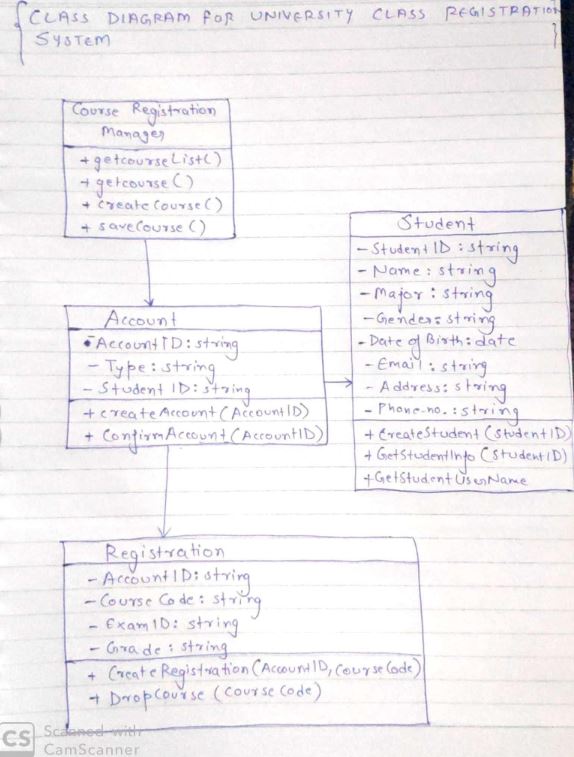 { CLASS DIAGRAM FOR UNIVERSITY CLASS REGISTRATION
SYSTEM }
Course Registration
Manager
+ getcourseList()
+ getcourse()
+ createCourse()
+ saveCourse()
Student
- Student ID : string
- Name : string
- Major : string
- Gender : string
- Date of Birth : date
- Email : string
- Address : string
- Phone-no. : string
+ CreateStudent (StudentID)
+ GetStudentInfo (StudentID)
+ GetStudentUserName
Account
• Account ID : string
- Type : string
- Student ID : string
+ createAccount (AccountID)
+ ConfirmAccount (AccountID)
Registration
- Account ID : string
- Course Code : string
- ExamID : string
- Grade : string
+ CreateRegistration (AccountID, CourseCode)
+ DropCourse (CourseCode)
CS Scanned with
CamScanner